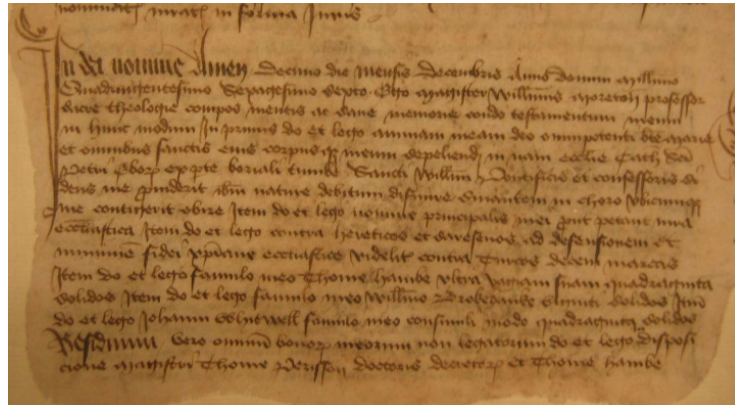 nominat) jurat) in forma Juris
In dei nomine Amen Decimo die mensis Decembris Anno domini Millimo
Quadringentesimo Septuagesimo Septo Ego Magister Willmus Moreton professor
sacre theologie compos mentis ac sane memorie condo testamentum meum
in hunc modum In primis do et lego animam meam deo omnipotenti bte Marie
et omnibus sanctis eius corpus qz meum sepeliend in naui ecclie Cath Sci
Petri Ebor ex pte boriali tumbe Sancti Willmi Pontificis et confessoris si
deus me ibm nature debitum Sinautem in choro vbicumqz
me contigerit obire Item do et lego nomine principalis mei put petant iura
ecciastica Item do et lego contra hereticos et ad defensionem et
fidei xpiane ecciastice videlit contra Turcos decem marcas
Item do et lego famulo meo Thome Hambe vltra vagiam suam quadraginta
solidos Item do et lego famulo meo Willmo viginti solidos Itm
do et lego Johanni famulo meo consimili modo quadraginta solidos
Residuum vero omnium bonorum meorum non legatorum do et lego disposi
cione magistri Thome doctoris decretorum et Thome Hambe